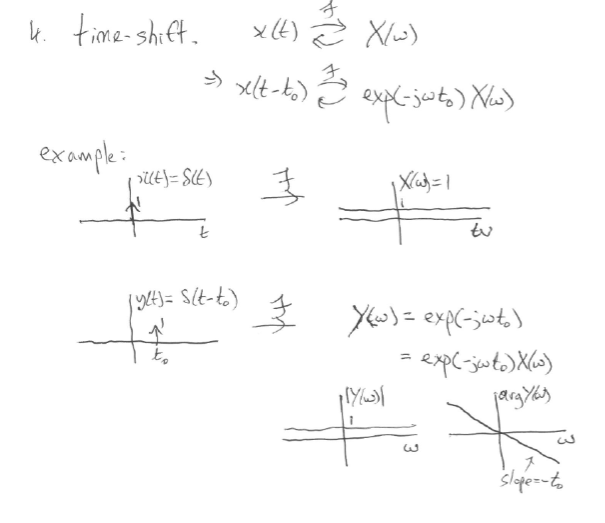 4. time-shift. x(t) ⇌ X(ω)
ℱ
⇒ x(t-t₀) ⇌ exp(-jωt₀) X(ω)
ℱ
example:
x(t) = δ(t) ℱ→ X(ω) = 1
1 1
t ω
y(t) = δ(t-t₀) ℱ→ Y(ω) = exp(-jωt₀)
1
t₀
= exp(-jωt₀) X(ω)
|Y(ω)| arg Y(ω)
1
ω ω
slope=-t₀